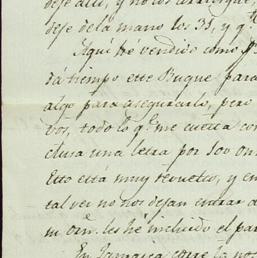 deje alli, y no lo
deje de la mano los 35, y q.
Aqui he vendido como p
dá tiempo este Buque para
algo para asegurarlo, pero
vos, todo lo q.e me cuesta con
clusa una letra por 500 on
Esto está muy revuelto, y en
tal vez no nos dejan entrar a
m orn. les hé incluido el par
En Jamaica corre la no